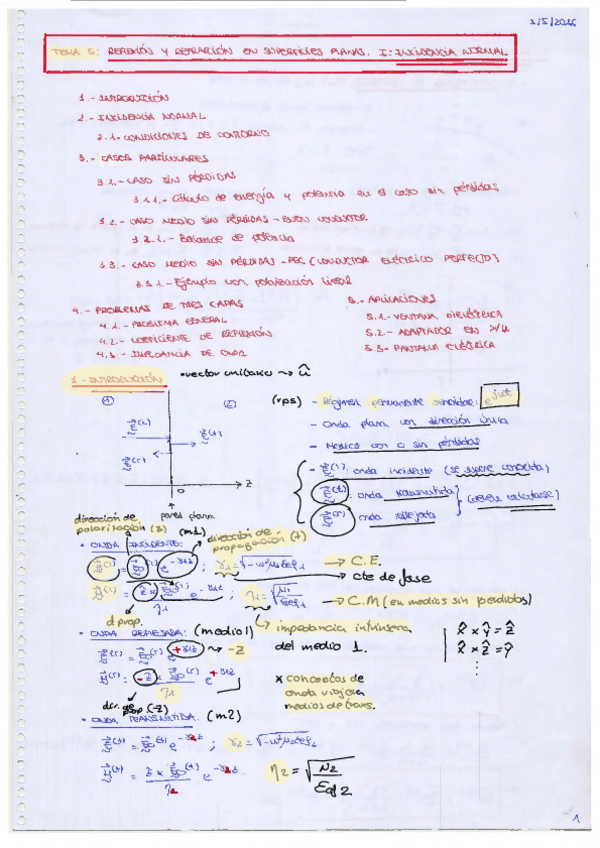 3/5/2016
TEMA 5: REFLEXIÓN Y REFRACCIÓN EN SUPERFICIES PLANAS. I: INCIDENCIA NORMAL
1.- INTRODUCCIÓN
2.- INCIDENCIA NORMAL
2.1.- CONDICIONES DE CONTORNO
3.- CASOS PARTICULARES
3.1.- CASO SIN PÉRDIDAS
3.1.1.- Cálculo de energía y potencia en el caso sin pérdidas
3.2.- CASO MEDIO SIN PÉRDIDAS - BUEN CONDUCTOR
3.2.1.- Balance de potencia
3.3.- CASO MEDIO SIN PÉRDIDAS - PEC (CONDUCTOR ELÉCTRICO PERFECTO)
3.3.1.- Ejemplo con polarización lineal
4.- PROBLEMAS DE TRES CAPAS
4.1.- PROBLEMA GENERAL
4.2.- COEFICIENTE DE REFLEXIÓN
4.3.- IMPEDANCIA DE ONDA
5.- APLICACIONES
5.1.- VENTANA DIELÉCTRICA
5.2.- ADAPTADOR EN λ/4
5.3.- PANTALLA ELÉCTRICA
1.- INTRODUCCIÓN
•vector unitario → û
(1) (2)
E(i) E(t)
E(r)
0 z
pared plana
(rps) - Régimen permanente sinusoidal: e^jωt
- Onda plana con dirección única
- Medios con o sin pérdidas
- E(i): onda incidente (se supone conocida)
E(t): onda transmitida
E(r): onda reflejada
(deben calcularse)
dirección de polarización (z) (m1)
dirección de propagación (z)
• ONDA INCIDENTE:
E(i) = E0(i) e^-γ1z ; γ1 = √-ω²μ1εef1 → C.E.
→ cte de fase
H(i) = ẑ × E0(i) / η1 e^-γ1z ; η1 = √μ1/εef1 → C.M (en medios sin perdidas)
d prop.
impedancia intrínseca del medio 1.
• ONDA REFLEJADA: (medio 1)
E(r) = E0(r) e^+γ1z → -z
H(r) = -ẑ × E0(r) / η1 e^+γ1z
dir. de prop (-z)
* conceptos de onda viajera medios de trans.
x̂ × ŷ = ẑ
x̂ × ẑ = ŷ
⋮
• ONDA TRANSMITIDA. (m2)
E(t) = E0(t) e^-γ2z ; γ2 = √-ω²μ2εef2
H(t) = ẑ × E0(t) / η2 e^-γ2z
η2 = √μ2/εef2
1